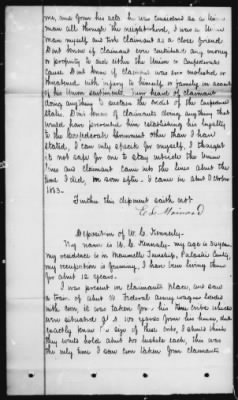 me, and from his acts he was considered as a Union
man all through the neighborhood, I was a Union
man myself and took claimant as a close friend.
Dont know if claimant ever contributed any money
or property to aid either the Union or Confederate
Cause. Dont know if claimant was ever molested or
threatened with injury to himself or family on account
of his Union sentiments. Never heard of claimants
doing anything to sustain the credit of the Confederate
States. Dont know of claimants doing anything that
would have prevented him establishing his loyalty
to the Confederate Government other than I have
stated, I can only speak for myself, I thought
it not safe for one to stay outside the Union
lines and claimant came into the lines about the
time I did, or soon after. I came in about October
1863.
Further this deponent saith not.
Deposition of W. C. Kennedy.
My name is W. C. Kennedy. my age is years,
my residence is in Township, Pulaski County,
my occupation is farming, I have been living there
for about 12 years.
I was present in claimants place, and saw
a train of about Federal army wagons loaded
with corn, it was taken from his three cribs which
were situated from his house, dont
exactly know size of these cribs, I should think
they would hold about bushels each, this was
the only time I saw corn taken from claimants